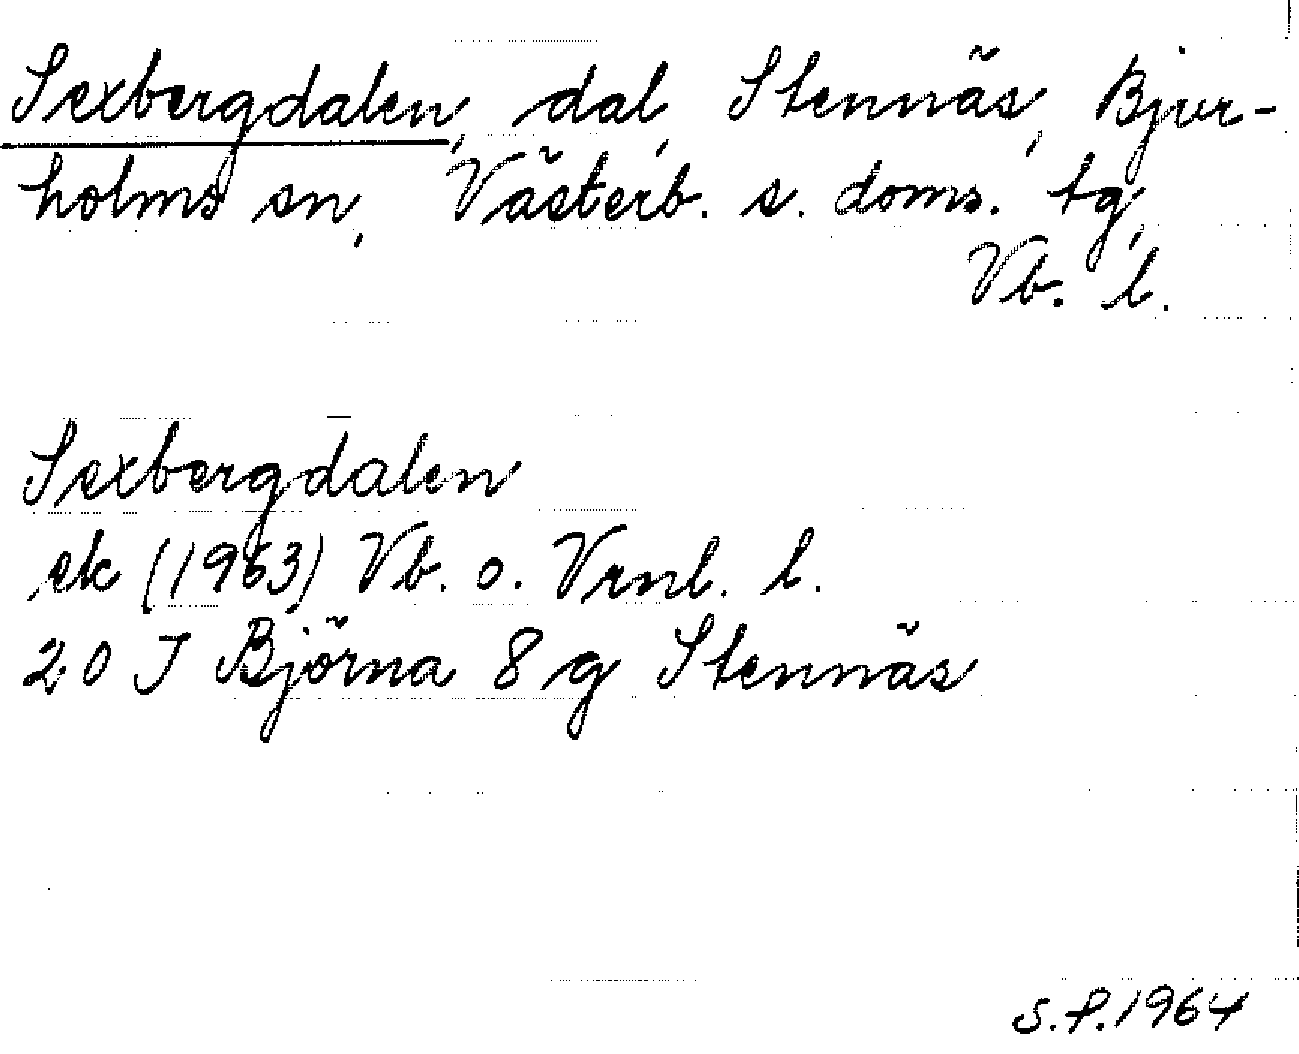 Sexbergdalen, dal, Stennäs, Bjur-
holms sn, Västerb. s. doms. tg,
Vb. l.
Sexbergdalen
ek (1963) Vb. o. Vrnl. l.
20 J Björna 8 g Stennäs
S.P.1964